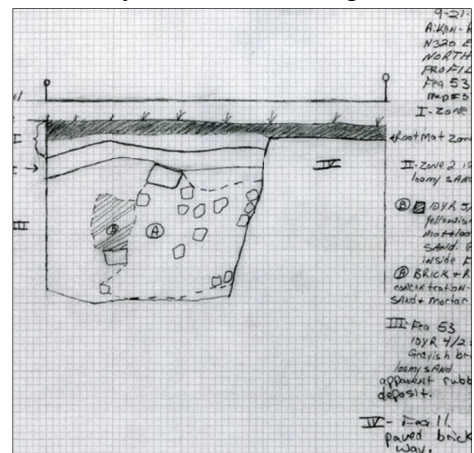 9-21-
Aiken-R
N320 E
NORTH
PROFIL
Fea 53
I- Zone
Root Mat Zon
II- Zone 2 10
loamy sand
B 10YR 5/
yellowis
sand.
inside F
A BRICK + R
concentration-
sand + mortar
III- Fea 53
10YR 4/2
Grayish br
loamy sand
apparent rubb
deposit.
IV- Fea 11.
paved brick
way.
I
IV
III
B
A